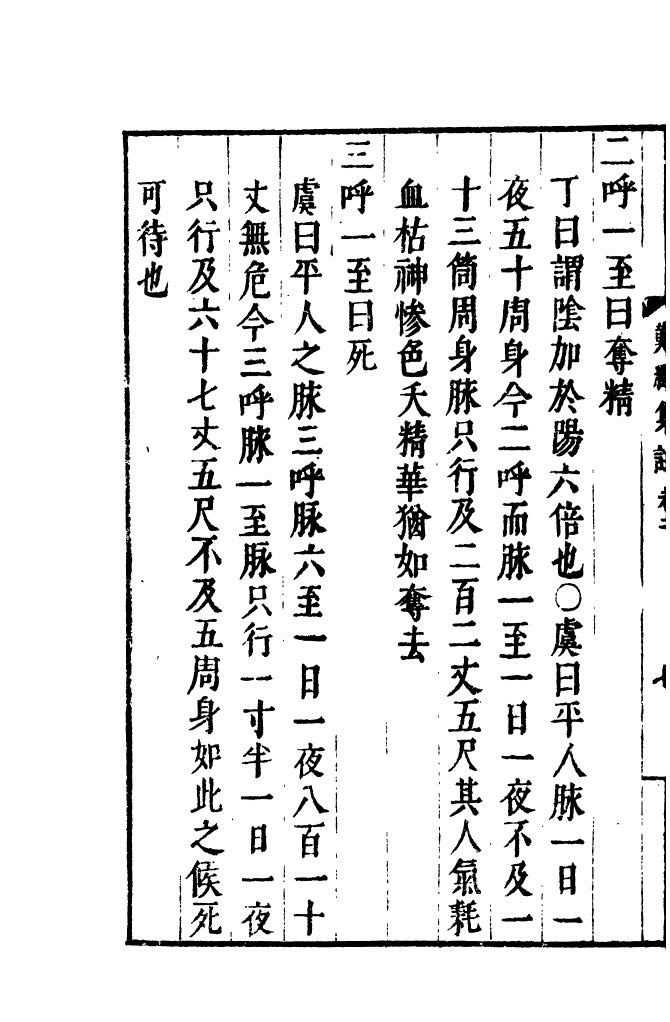 二呼一至曰奪精
丁曰謂陰加於陽六倍也○虞曰平人脉一日一
夜五十周身今二呼而脉一至一日一夜不及一
十三筒周身脉只行及二百二丈五尺其人氣耗
血枯神慘色夭精華猶如奪去
三呼一至曰死
虞曰平人之脉三呼脉六至一日一夜八百一十
丈無危今三呼脉一至脉只行一寸半一日一夜
只行及六十七丈五尺不及五周身如此之候死
可待也